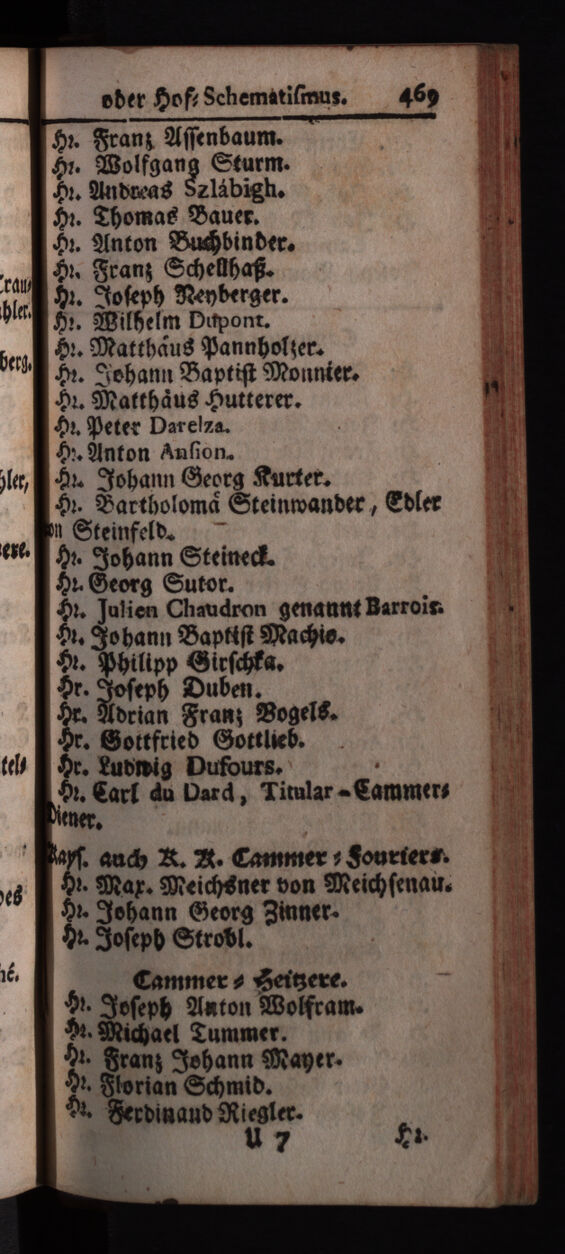 oder Hof-Schematismus. 469
Hr. Franz Assenbaum.
Hr. Wolfgang Sturm.
Hr. Andreas Szlábigh.
Hr. Thomas Bauer.
Hr. Anton Buchbinder.
Hr. Franz Schellhaß.
Hr. Joseph Neyberger.
Hr. Wilhelm Dupont.
Hr. Matthäus Pannholzer.
Hr. Johann Baptist Monnier.
Hr. Matthäus Hutterer.
Hr. Peter Darelza.
Hr. Anton Ansion.
Hr. Johann Georg Kurter.
Hr. Bartholomä Steinwander, Edler
von Steinfeld.
Hr. Johann Steineck.
Hr. Georg Sutor.
Hr. Julien Chaudron genannt Barrois.
Hr. Johann Baptist Machio.
Hr. Philipp Girschka.
Hr. Joseph Duben.
Hr. Adrian Franz Vogels.
Hr. Gottfried Gottlieb.
Hr. Ludwig Dufours.
Hr. Carl du Dard, Titular-Cammer-
Diener.
Kays. auch K. K. Cammer-Fouriers.
Hr. Max. Meichsner von Meichsenau.
Hr. Johann Georg Zinner.
Hr. Joseph Strobl.
Cammer-Heitzere.
Hr. Joseph Anton Wolfram.
Hr. Michael Tummer.
Hr. Franz Johann Mayer.
Hr. Florian Schmid.
Hr. Ferdinand Riegler.
U 7 Hr.